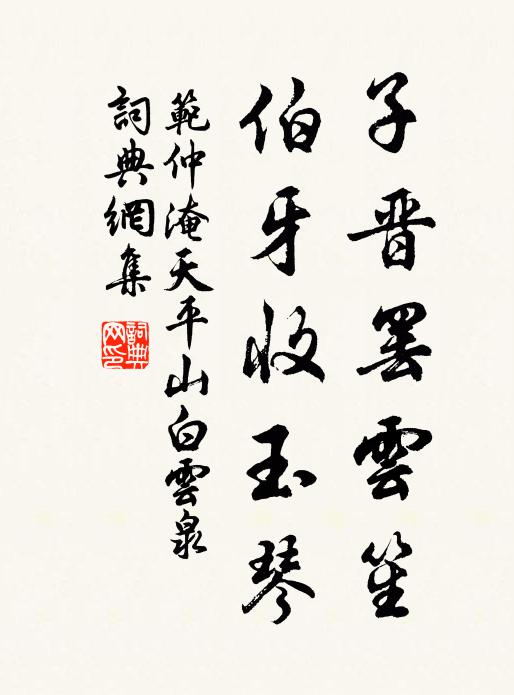 子晋罢雲笙
伯牙收玉琴
範仲淹天平山白雲泉
詞典網集
詞典
网印